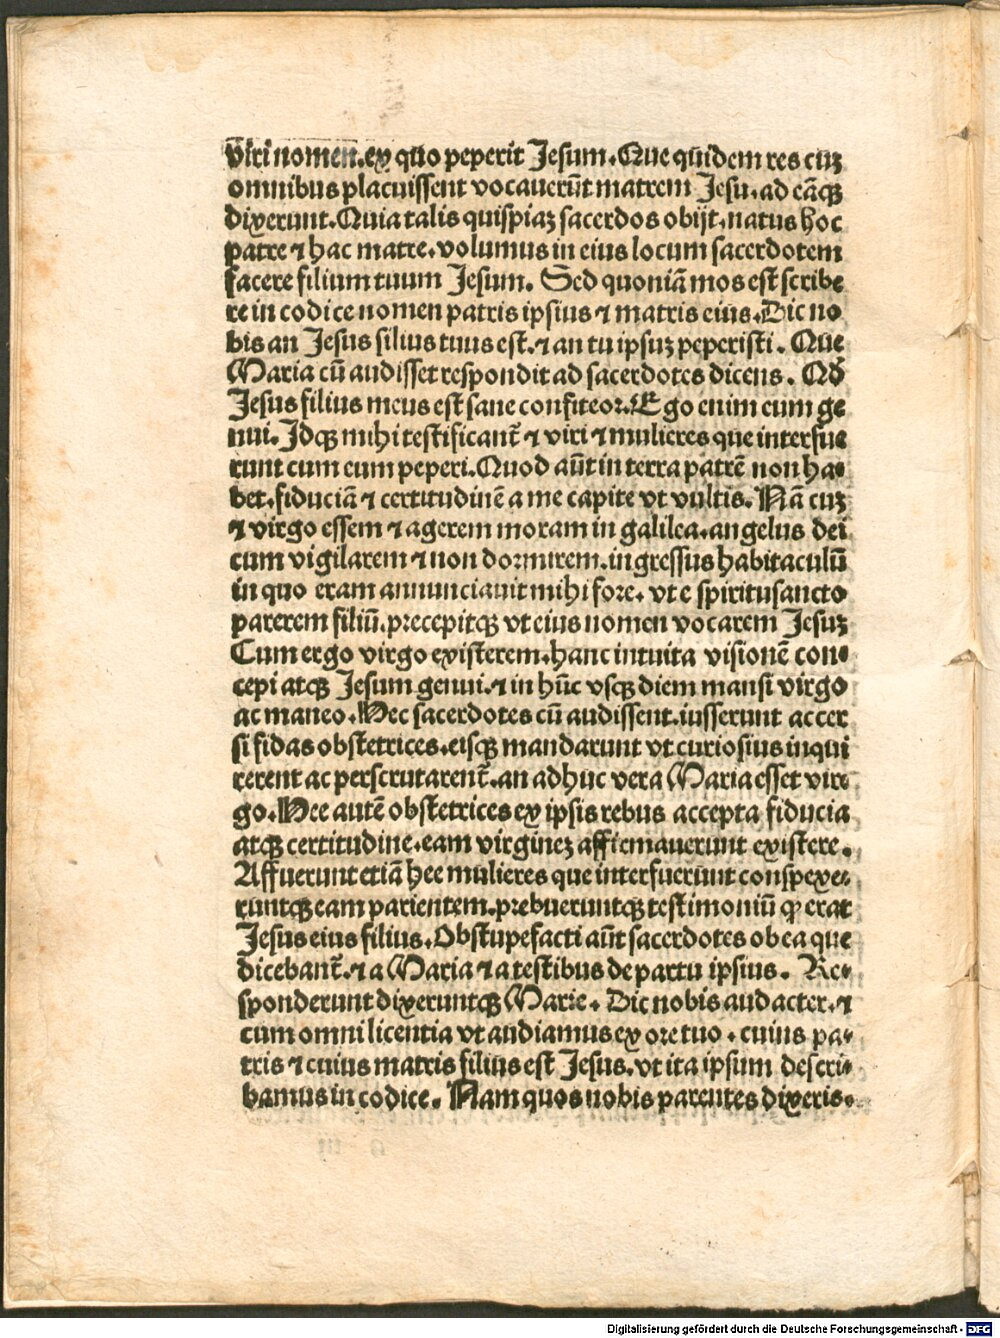 viri nomen.ex quo peperit Jesum.Que quidem res cuꝫ
omnibus placuissent vocauerūt matrem Jesu.ad eāqꝫ
dixerunt.Quia talis quispiaꝫ sacerdos obijt.natus hoc
patre ⁊ hac matre.volumus in eius locum sacerdotem
facere filium tuum Jesum. Sed quoniā mos est scribe
re in codice nomen patris ipsius ⁊ matris eius.Dic no
bis an Jesus silius tuus est.⁊ an tu ipsuꝫ peperisti. Que
Maria cū audisset respondit ad sacerdotes dicens. Qd̓
Jesus filius meus est sane confiteor.Ego enim eum ge
nui.Idqꝫ mihi testificanť ⁊ viri ⁊ mulieres que interfue
runt cum eum peperi.Quod aūt in terra patrē non ha-
bet.fiduciā ⁊ certitudinē a me capite vt vultis. Nā cuꝫ
⁊ virgo essem ⁊ agerem moram in galilea.angelus dei
cum vigilarem ⁊ non dormirem.ingressus habitaculū
in quo eram annunciauit mihi fore. vt e spiritusancto
parerem filiū.precepitqꝫ vt eius nomen vocarem Jesuꝫ
Cum ergo virgo existerem.hanc intuita visionē con-
cepi atqꝫ Jesum genui.⁊ in hūc vsqꝫ diem mansi virgo
ac maneo.Hec sacerdotes cū audissent.iusserunt accer
si fidas obstetrices.eisqꝫ mandarunt vt curiosius inqui
rerent ac perscrutarenť.an adhuc vera Maria esset vir-
go.Hee autē obstetrices ex ipsis rebus accepta fiducia
atqꝫ certitudine.eam virgineꝫ affirmauerunt existere.
Affuerunt etiā hee mulieres que interfuerunt conspexe-
runtqꝫ eam parientem.prebueruntqꝫ testimoniū ꝙ erat
Jesus eius filius.Obstupefacti aūt sacerdotes ob ea que
dicebanť.⁊ a Maria ⁊ a testibus de partu ipsius. Re-
sponderunt dixeruntqꝫ Marie. Dic nobis audacter.⁊
cum omni licentia vt audiamus ex ore tuo.cuius pa-
tris ⁊ cuius matris filius est Jesus.vt ita ipsum descri-
bamus in codice. Nam quos nobis parentes dixeris.
Digitalisierung gefördert durch die Deutsche Forschungsgemeinschaft - DFG